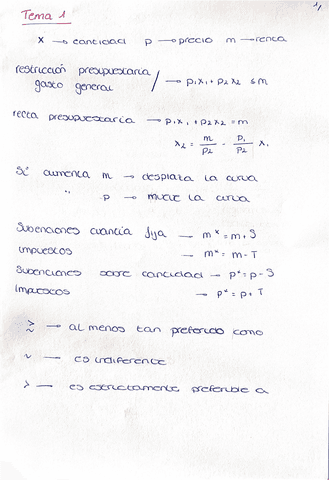 Tema 1
1/
x → cantidad p → precio m → renta
restricción presupuestaria / → p₁x₁ + p₂x₂ ≤ m
gasto general
recta presupuestaria → p₁x₁ + p₂x₂ = m
x₂ = m/p₂ - p₁/p₂ x₁
Si aumenta m → desplaza la curva
" p → mueve la curva
Subenciones cuantía fija → m* = m + S
impuestos → m* = m - T
Subenciones sobre cantidad → p* = p - S
Impuestos → p* = p + T
≿ → al menos tan preferido como
~ → es indiferente
≻ → es estrictamente preferible a